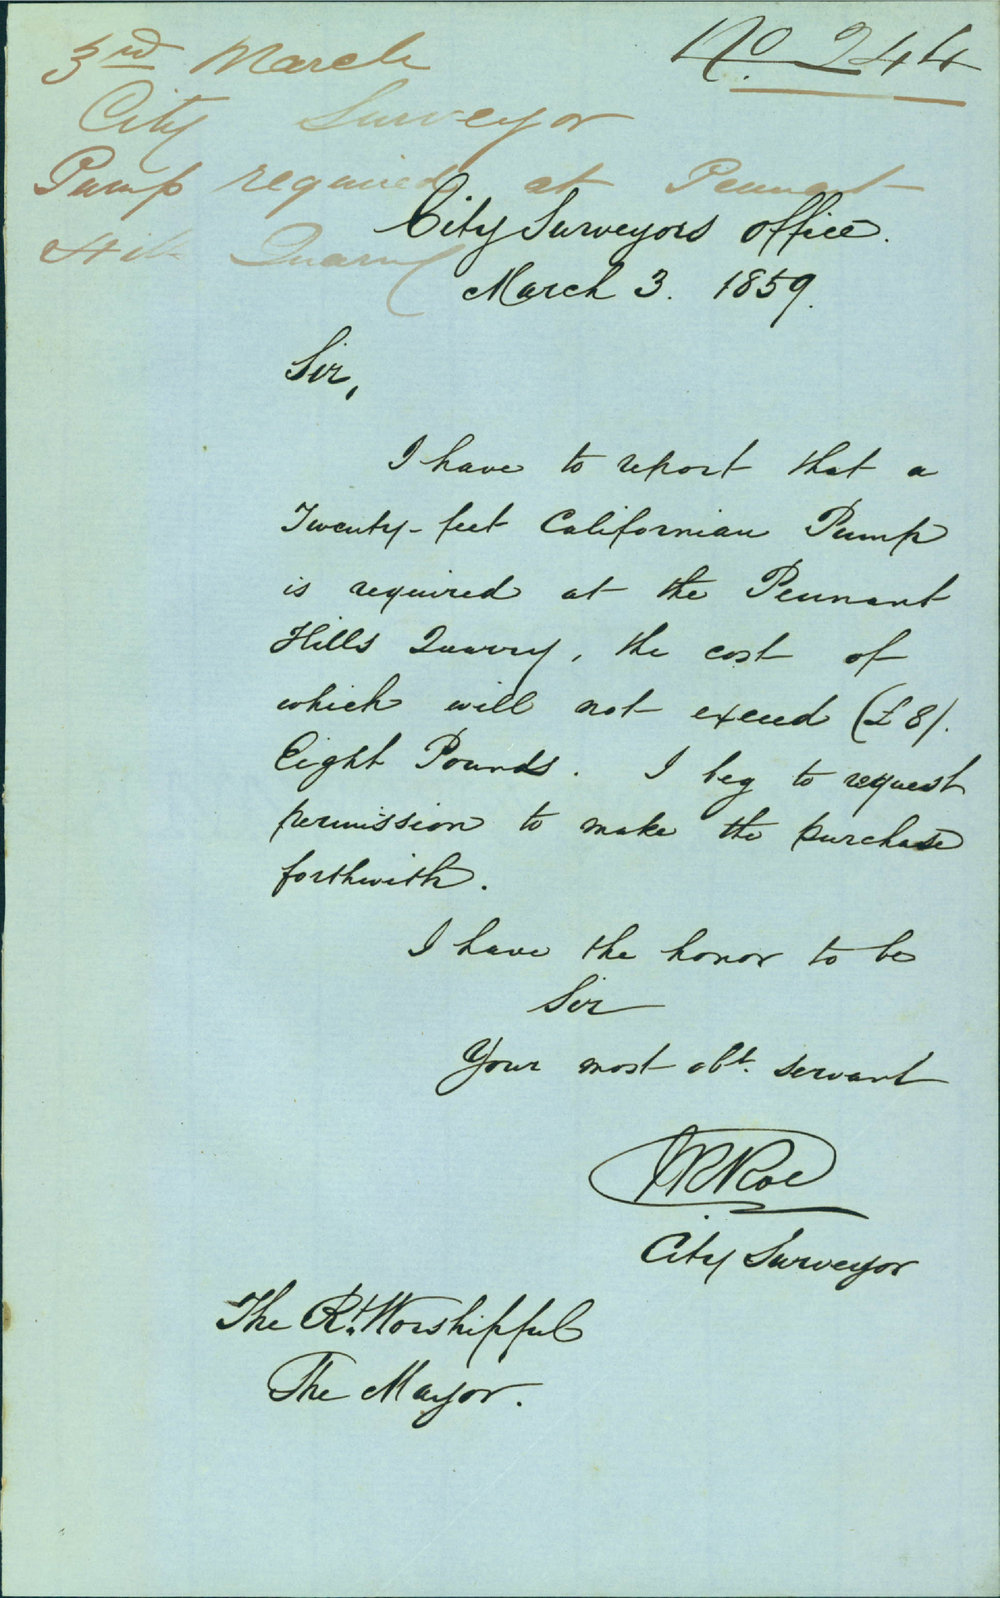 No 244
3rd March
City Surveyor
Pump required at Pennant
Hills Quarry
City Surveyors Office.
March 3. 1859.
Sir,
I have to report that a
Twenty-feet Californian Pump
is required at the Pennant
Hills Quarry, the cost of
which will not exceed (£8).
Eight Pounds. I beg to request
permission to make the purchase
forthwith.
I have the honor to be
Sir
Your most obt. servant
City Surveyor
The Rt. Worshipful
The Mayor.